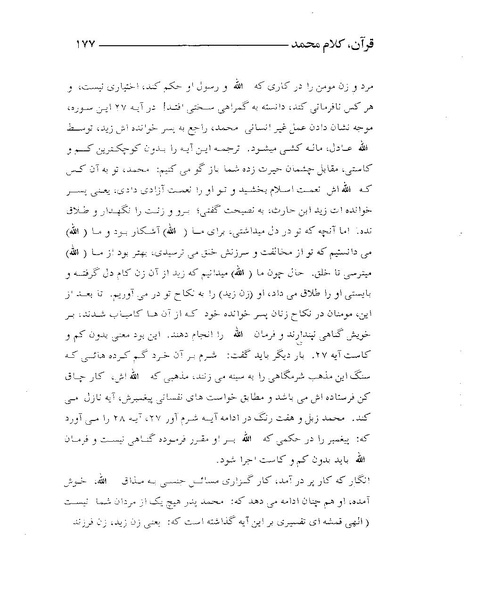 قرآن، کلام محمد ۱۷۷
مرد و زن مومن را در کاری که الله و رسول او حکم کند، اختیاری نیست، و
هر کس نافرمانی کند، دانسته به گمراهی سختی افتد! در آیه ۲۷ این سوره،
موجه نشان دادن عمل غیر انسانی محمد، راجع به پسر خوانده اش زید، توسط
الله عادل، ماله کشی میشود. ترجمه این آیه را بدون کوچکترین کم و
کاستی، مقابل چشمان حیرت زده شما باز گو می کنیم: محمد، تو به آن کس
که الله اش نعمت اسلام بخشید و تو او را نعمت آزادی دادی، یعنی پسر
خوانده ات زید ابن حارث، به نصیحت گفتی؛ برو و زنت را نگهدار و طلاق
نده. اما آنچه که تو در دل میداشتی، برای ما ( الله) آشکار بود و ما ( الله)
می دانستیم که تو از مخالفت و سرزنش خلق می ترسیدی، بهتر بود از ما ( الله)
میترسی تا خلق. حال چون ما ( الله) میدانیم که زید از آن زن کام دل گرفته و
بایستی او را طلاق می داد، او (زن زید) را به نکاح تو در می آوریم. تا بعد از
این، مومنان در نکاح زنان پسر خوانده خود که از آن ها کامیاب شدند، بر
خویش گناهی نپندارند و فرمان الله را انجام دهند. این بود معنی بدون کم و
کاست آیه ۲۷. بار دیگر باید گفت: شرم بر آن خرد گم کرده هائی که
سنگ این مذهب شرمگاهی را به سینه می زنند، مذهبی که الله اش، کار چاق
کن فرستاده اش می باشد و مطابق خواست های نفسانی پیغمبرش، آیه نازل می
کند. محمد زبل و هفت رنگ در ادامه آیه شرم آور ۲۷، آیه ۲۸ را می آورد
که: پیغمبر را در حکمی که الله بر او مقرر فرموده گناهی نیست و فرمان
الله باید بدون کم و کاست اجرا شود.
انگار که کار پر در آمد، کار گزاری مسائل جنسی به مذاق الله، خوش
آمده، او هم چنان ادامه می دهد که: محمد پدر هیچ یک از مردان شما نیست
( الهی قمشه ای تفسیری بر این آیه گذاشته است که: یعنی زن زید، زن فرزند